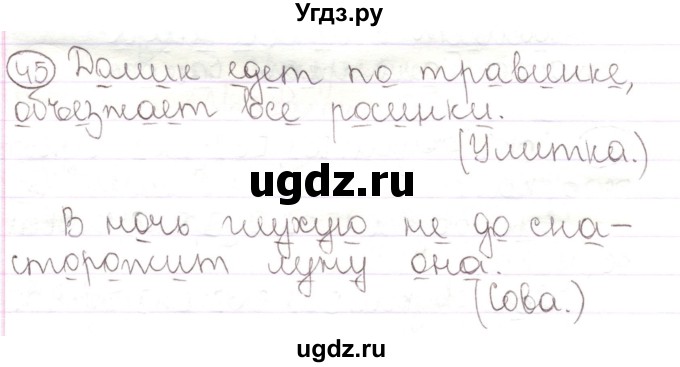 Угдз.ру
45 Домик едет по травинке,
объезжает все росинки.
(Улитка.)
ugdz.ru
В ночь глухую не до сна-
сторожит луну она.
(Сова.)
ugdz.ru